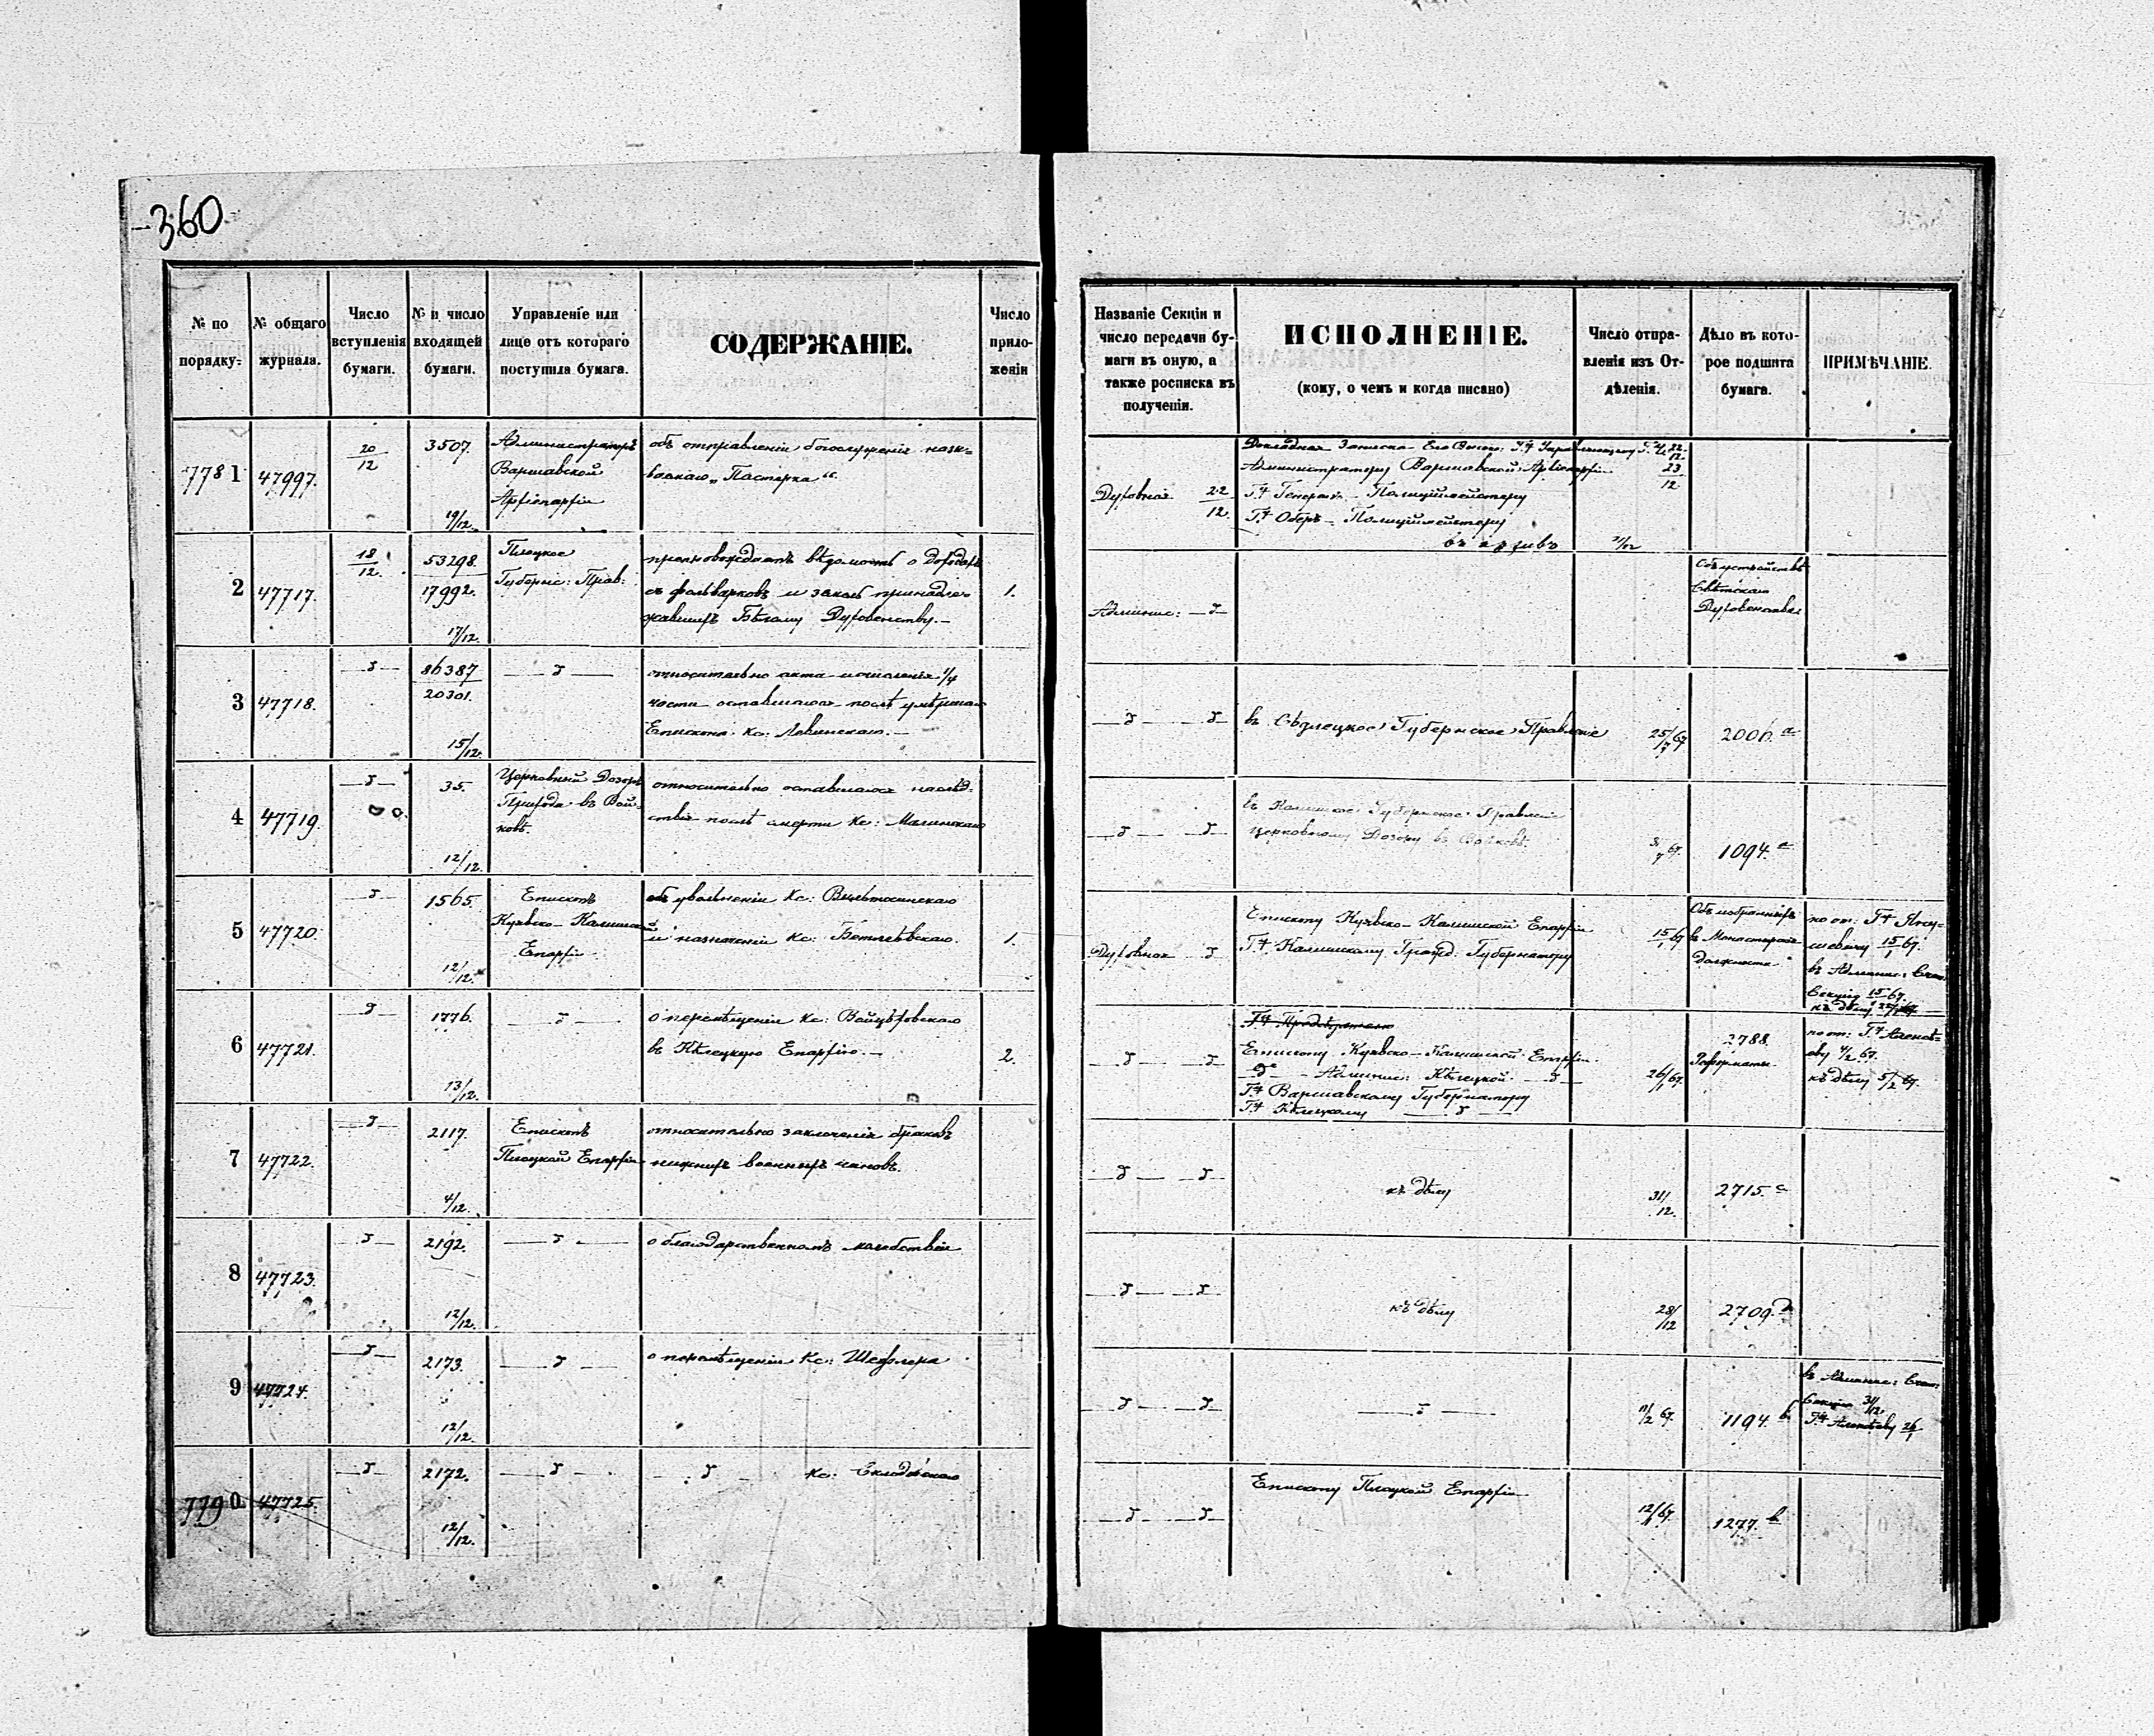 360
№ по
порядку.
№ общаго
журнала.
Число
вступленія
бумаги.
№ и число
входящей
бумаги.
Управленіе или
лице отъ котораго
поступила бумага.
СОДЕРЖАНІЕ.
Число
прило-
женій
Названіе Секціи и
число передачи бу-
маги въ оную, а
также росписка въ
полученіи.
ИСПОЛНЕНІЕ.
(кому, о чемъ и когда писано)
Число отпра-
вленія изъ От-
дѣленія.
Дѣло въ кото-
рое подшита
бумага.
ПРИМѢЧАНІЕ.
7781
47997.
20/12
3507.
19/12.
Администраторъ
Варшавской
Архіепархіи
объ отправленіи богослуженія назы-
ваемаго „Пастерка“
Духовная 22/12.
Докладная Записка
Администратору Варшавской Архіепархіи
Г. Генералъ-Полиціймейстеру
Г. Оберъ-Полиціймейстеру
23/12
2
47717.
18/12.
53298.
17992.
17/12.
Плоцкое
Губернс: Прав:
препровождаетъ вѣдомость о доходахъ
съ фольварковъ и земль принадле-
жавшихъ Бѣлому Духовенству.—
1.
Админис: — д —
Объ устройствѣ
Свѣтскаго
Духовенства
3
47718.
— д —
86387
20301.
15/12.
— д —
относительно акта исчисленія 1/4
части оставшагося послѣ умершаго
Епископа Кс: Левинскаго.—
— д — — д —
въ Сѣдлецкое Губернское Правленіе
25/7 67
2006. a
4
47719.
— д —
35.
12/12.
Церковный Дозоръ
Прихода въ Вой-
ковѣ.
относительно оставшагося наслѣд-
ства послѣ смерти Кс: Малинскаго
— д — — д —
въ Калишское Губернское Правленіе
Церковному Дозору въ Войковѣ.
1094. a
5
47720.
— д —
1565.
12/12.
Епископъ
Куявско-Калишской
Епархіи
объ увольненіи Кс:
и назначеніи Кс:
1.
Духовная — д
Епископу Куявско-Калишской Епархіи
Г. Калишскому Гражд. Губернатору
15/1 67
Объ избранныхъ
въ Монастырскія
должности
по от: Г.
15/1 67.
въ Админис:
Секцію 15/1 67.
къ дѣлу
6
47721.
— д —
1776.
13/12.
— д —
о перемѣщеніи Кс: Войцѣховскаго
въ Кѣлецкую Епархію.—
2.
— д — — д —
Епископу Куявско-Калишской Епархіи
— д — Админис: Кѣлецкой — д —
Г. Варшавскому Губернатору
Г. Кѣлецкому — д —
26/1 67.
2788.
Реформаты
по от: Г.
4/2 67.
къ дѣлу 5/2 67.
7
47722.
— д —
2117.
4/12.
Епископъ
Плоцкой Епархіи
относительно заключенія браковъ
нижнихъ военныхъ чиновъ.
— д — — д —
къ дѣлу
31/12.
2715. c
8
47723.
— д —
2192.
12/12.
— д —
о благодарственномъ молебствіи
— д — — д —
къ дѣлу
28/12
2709. д
9
47724.
— д —
2173.
12/12.
— д —
о перемѣщеніи Кс: Шефлера
— д — — д —
— д —
11/2 67.
1194. b
въ Админис:
Секцію 31/12.
7790
47725.
— д —
2172.
12/12.
— д —
— д — Кс:
— д — — д —
Епископу Плоцкой Епархіи
12/1 67.
1277. b